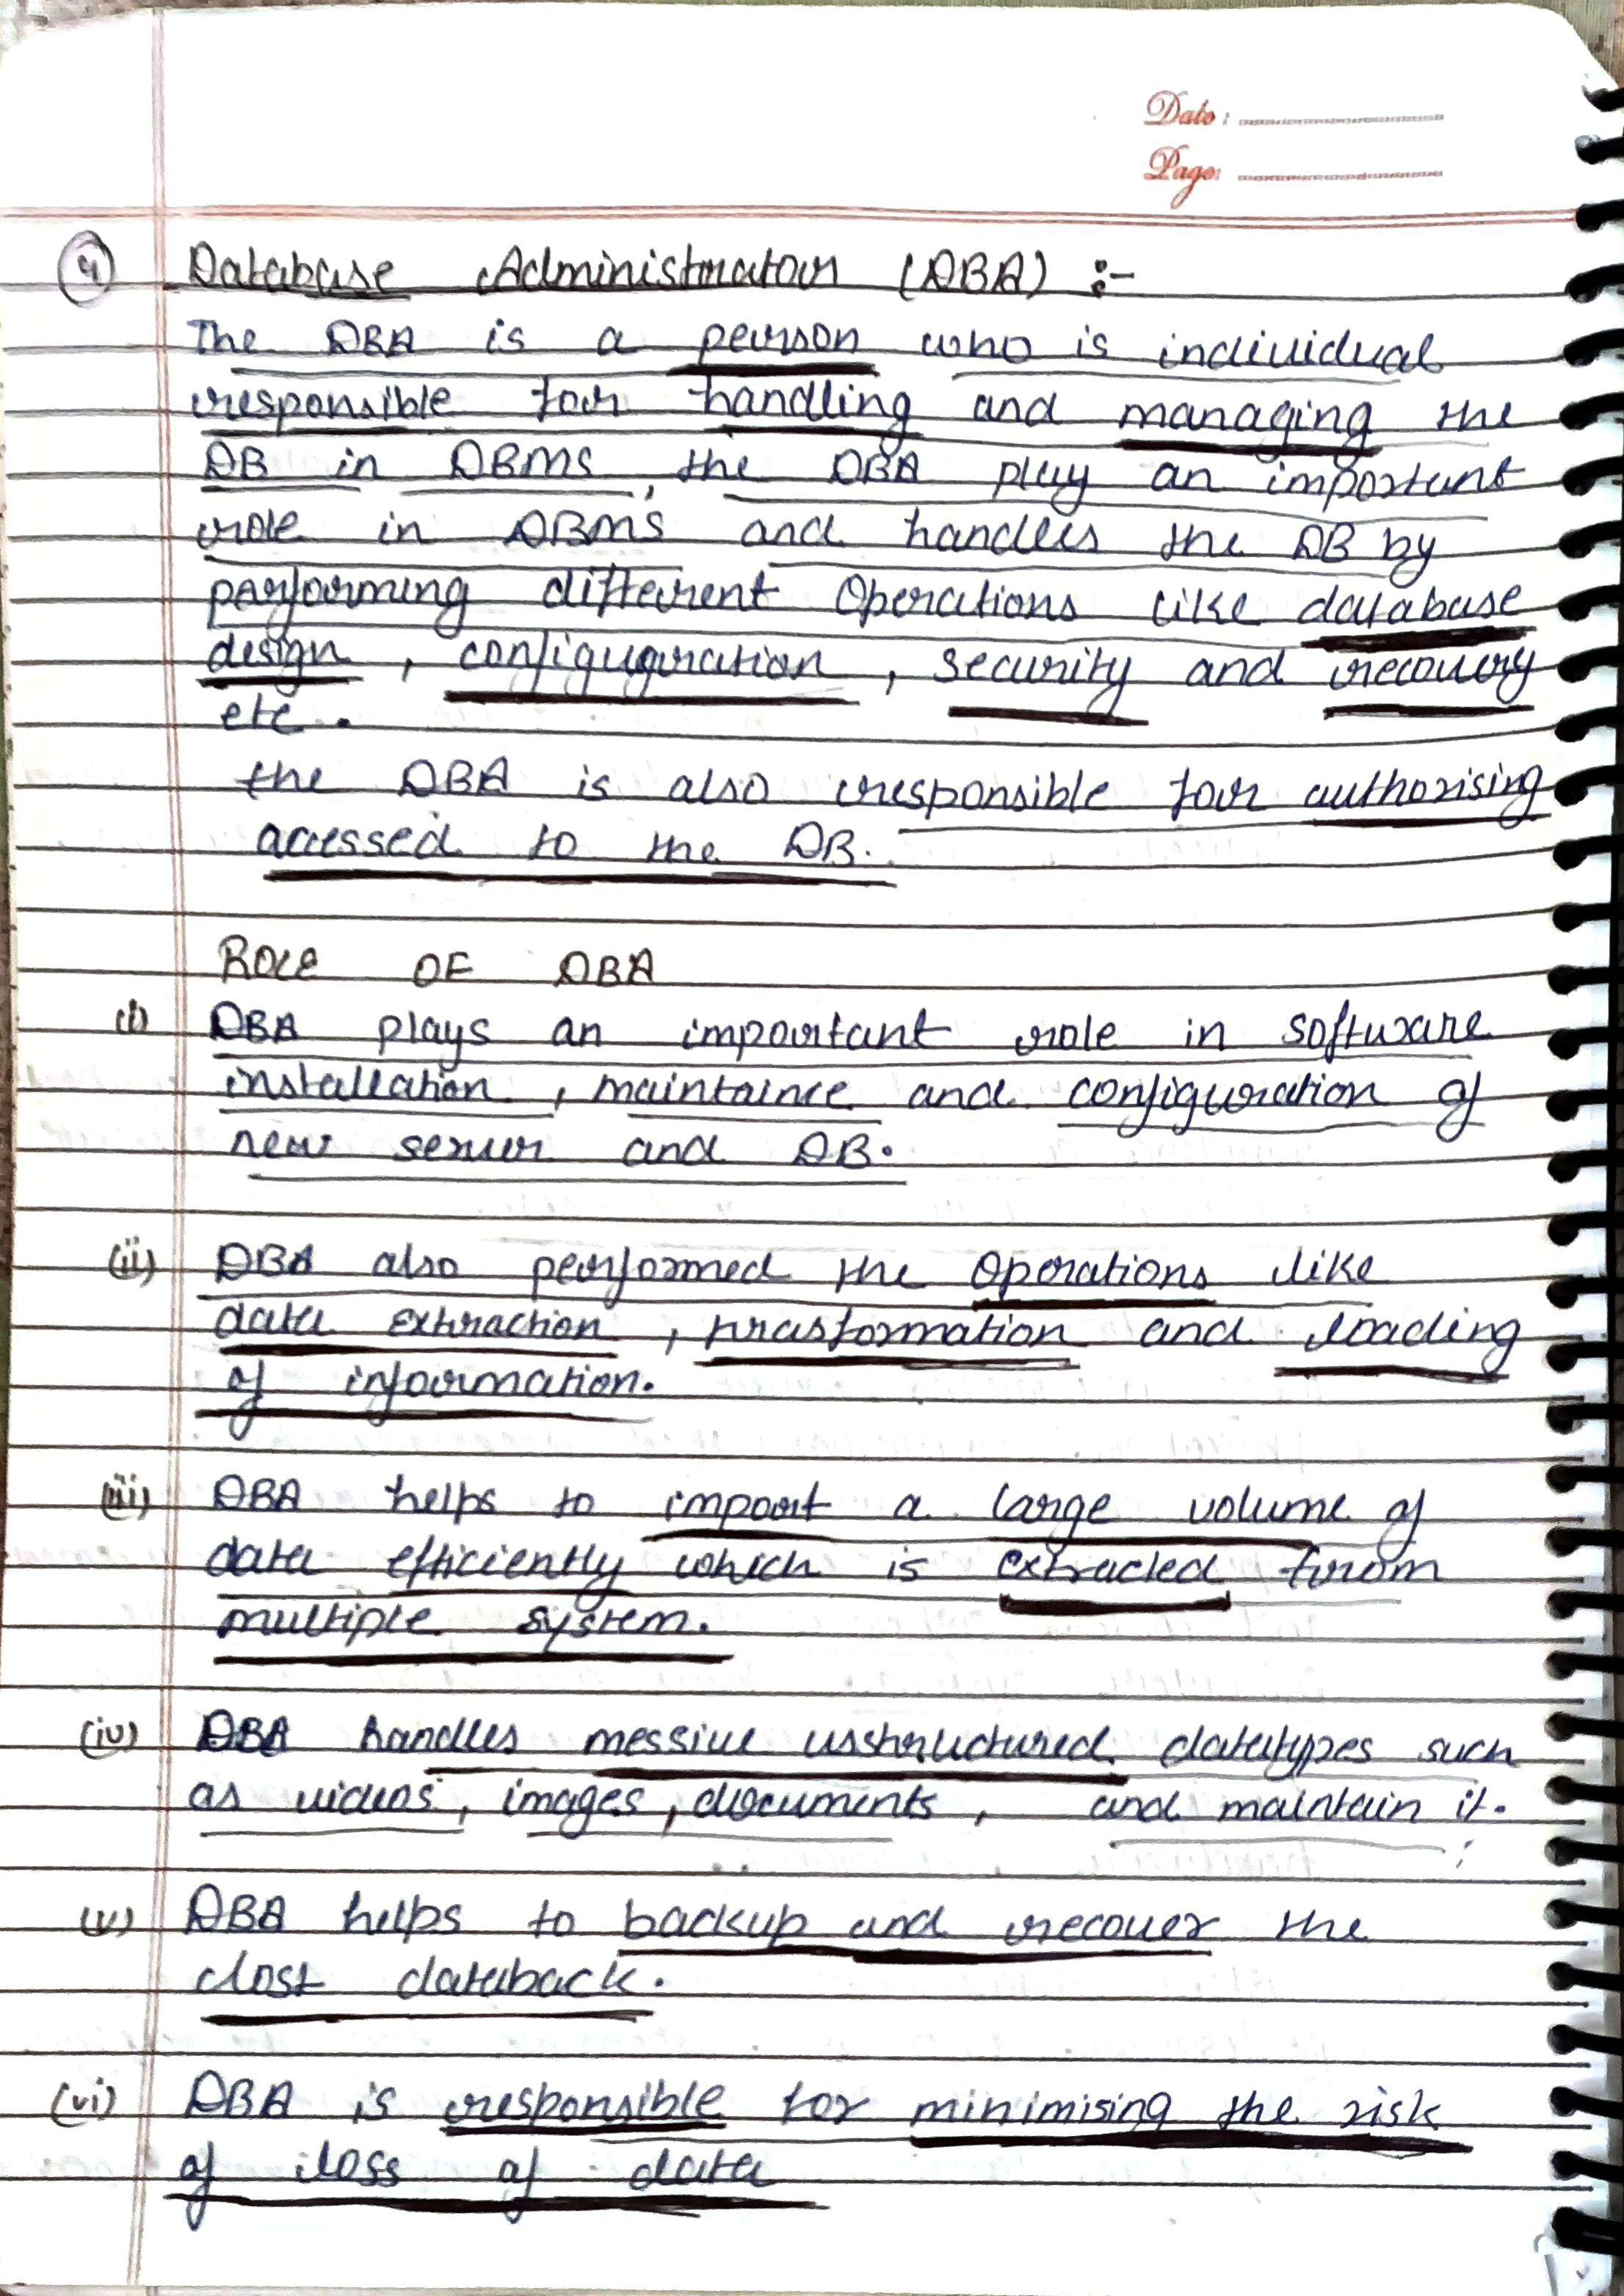 Date :
Page:
4 Database Administrator (DBA) :-
The DBA is a person who is individual
responsible for handling and managing the
DB in DBMS, the DBA play an important
role in DBMS and handles the DB by
parforming different Operations like database
design , configugaration , security and recovery
etc .
the DBA is also responsible for authorising
accessed to the DB.
ROLE OF DBA
(i) DBA plays an important role in software
installation , maintaince and configuration of
new server and DB.
(ii) DBA also performed the Operations like
data extraction , trasformation and loading
of information.
(iii) DBA helps to import a large volume of
data efficiently which is extracted from
multiple system.
(iv) DBA handles messive usstructured datatypes such
as videos, images, documents, and maintain it.
(v) DBA helps to backup and recover the
lost databack.
(vi) DBA is responsible for minimising the risk
of loss of data